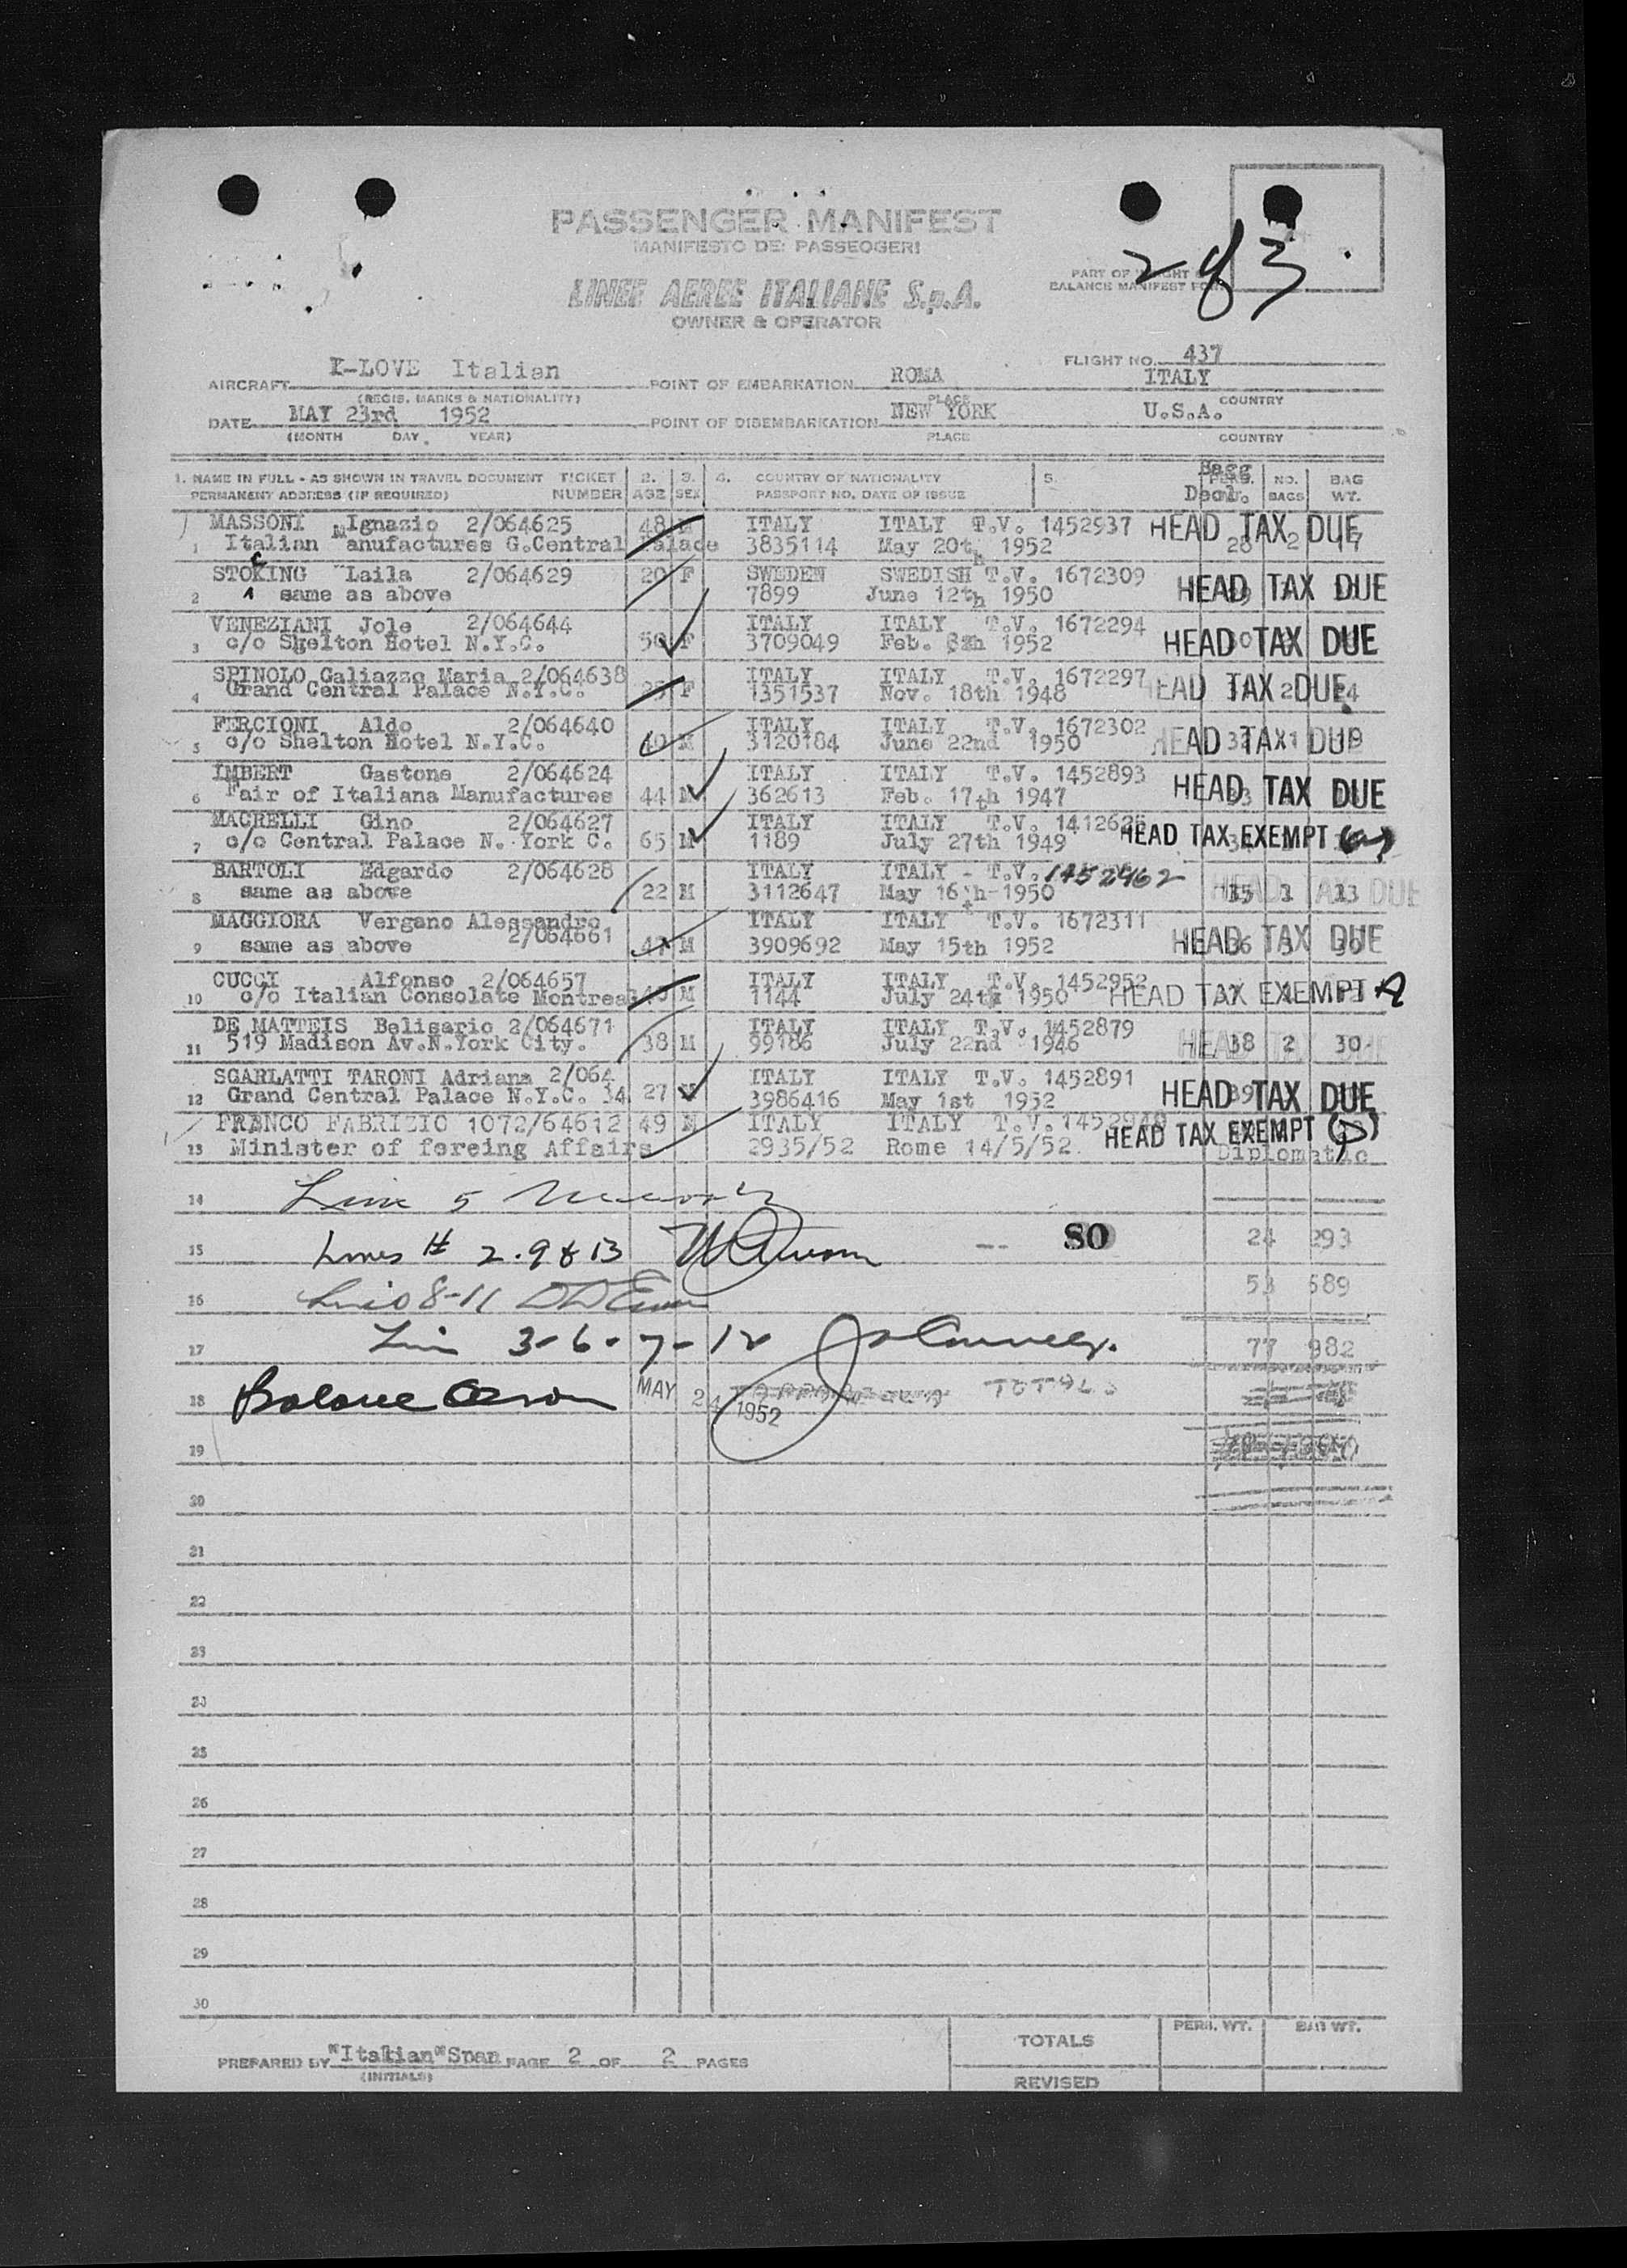 PASSENGER MANIFEST
MANIFESTO DEI PASSEOGERI
2 of 3
PART OF WEIGHT
BALANCE MANIFEST FOR
LINEE AEREE ITALIANE S.p.A.
OWNER & OPERATOR
FLIGHT NO. 437
AIRCRAFT I-LOVE Italian POINT OF EMBARKATION ROMA ITALY
(REGIS. MARKS & NATIONALITY) PLACE COUNTRY
DATE MAY 23rd 1952 POINT OF DISEMBARKATION NEW YORK U.S.A.
(MONTH DAY, YEAR) PLACE COUNTRY
1. NAME IN FULL - AS SHOWN IN TRAVEL DOCUMENT TICKET 2. 3. 4. COUNTRY OF NATIONALITY 5. Bagg NO. BAG
PERMANENT ADDRESS (IF REQUIRED) NUMBER AGE SEX PASSPORT NO. DATE OF ISSUE Decl. BAGS WT.
MASSONI Ignazio 2/064625 48 M ITALY ITALY T.V. 1452937 HEAD TAX DUE
1 Italian Manufactures G.Central Palace 3835114 May 20th 1952 28 2 17
STOCKING Laila 2/064629 20 F SWEDEN SWEDISH T.V. 1672309 HEAD TAX DUE
2 same as above 7899 June 12th 1950
VENEZIANI Jole 2/064644 ITALY ITALY T.V. 1672294 HEAD TAX DUE
3 c/o Shelton Hotel N.Y.C. 50 F 3709049 Feb. 1952
SPINOLO Galiazzo Maria 2/064638 ITALY ITALY T.V. 1672297 HEAD TAX DUE
4 Grand Central Palace N.Y.C. F 1351537 Nov. 18th 1948 2 24
FERCIONI Aldo 2/064640 ITALY ITALY T.V. 1672302 HEAD TAX DUE
5 c/o Shelton Hotel N.Y.C. 40 M 3120184 June 22nd 1950 32 1
IMBERT Gastone 2/064624 ITALY ITALY T.V. 1452893 HEAD TAX DUE
6 Fair of Italiana Manufactures 44 M 362613 Feb. 17th 1947 33
MACRELLI Gino 2/064627 ITALY ITALY T.V. HEAD TAX EXEMPT
7 c/o Central Palace N. York C. 65 M 1189 July 27th 1949 34
BARTOLI Edgardo 2/064628 ITALY ITALY - T.V. 1452962 HEAD TAX DUE
8 same as above 22 M 3112647 May 16th-1950 35 1 13
MAGGIORA Vergano Alessandro ITALY ITALY T.V. 1672311 HEAD TAX DUE
2/064661
9 same as above 47 M 3909692 May 15th 1952 36 3 30
CUCCI Alfonso 2/064657 ITALY ITALY T.V. 1452952 HEAD TAX EXEMPT A
10 c/o Italian Consolate Montreal M 1144 July 24th 1950 37
DE MATTEIS Belisario 2/064671 ITALY ITALY T.V. 1452879 HEAD TAX DUE
11 519 Madison Av.N.York City. 38 M 99186 July 22nd 1946 38 2 30
SCARLATTI TARONI Adriana 2/064 ITALY ITALY T.V. 1452891 HEAD TAX DUE
12 Grand Central Palace N.Y.C. 34 27 3986416 May 1st 1952 39
FRANCO FABRIZIO 1072/64612 49 M ITALY ITALY T.V. HEAD TAX EXEMPT (D)
13 Minister of foreing Affairs 2935/52 Rome 14/5/52. Diplomatic
14 Line 5
15 Lines # 2.9 & 13 -- SO 24 293
16 8-11 53 689
17 3-6-7-12 77 982
18 MAY 24 1952 TOTALS
19
20
21
22
23
24
25
26
27
28
29
30
PREPARED BY "Italian"Span PAGE 2 OF 2 PAGES TOTALS PERS. WT. BAG WT.
(INITIALS) REVISED